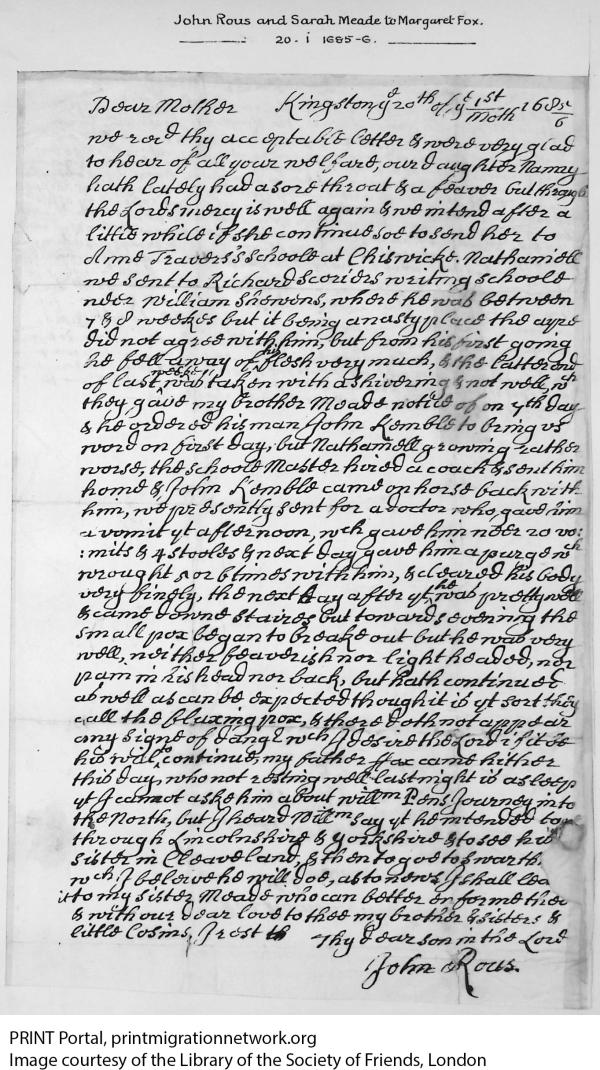 John Rous and Sarah Meade to Margaret Fox.
20 . i 1685-6.
Dear Mother Kingston yᵉ 20th of yᵉ 1st Moth 1685/6
we recd thy acceptable letter & were very glad
to hear of all your welfare, our daughter Nanny
hath lately had a sore throat & a feaver but through
the Lords mercy is well again & we intend after a
little while if she continue soe to send her to
Anne Travers's schoole at Chiswicke. Nathaniell
we sent to Richard Scoriers writing schoole
neer William Shewens, where he was between
7 & 8 weekes but it being a nasty place the ayre
did not agree with him, but from his first going
he fell away of his flesh very much, & the latter end
of last weeke was taken with a shivering & not well, wch
they gave my brother Meade notice of on 7th day
& he ordered his man John Kemble to bring us
word on first day, but Nathaniell growing rather
worse, the schoole Master hired a coach & sent him
home & John Kemble came on horse back with
him, we presently sent for a doctor who gave him
a vomit yt afternoon, wch gave him neer 20 vo:
:mits & 4 stooles & next day gave him a purge wch
wrought 5 or 6 times with him, & cleared his body
very finely, the next day after yt he was pretty well
& came downe staires but towards evening the
small pox began to breake out but he was very
well, neither feaverish nor light headed, nor
pain in his head nor back, but hath continued
as well as can be expected though it is yt sort they
call the fluxing pox, & there doth not appear
any signe of dangr wch I desire the Lord if it be
his will to continue, my father ffox came hither
this day, who not resting well last night is asleep
yt I cannot aske him about willm Pens Journey into
the North, but I heard Willm say yt he intended to
through Lincolnshire & Yorkshire & to see his
sister in Cleaveland, & then to goe to Swarth.
wch I beleive he will doe, as to news I shall lea
it to my sister Meade who can better informe thee
& with our dear love to thee my brother & sisters &
little Cosins, I rest Thy dear son in the Lord
John Rous.
PRINT Portal, printmigrationnetwork.org
Image courtesy of the Library of the Society of Friends, London